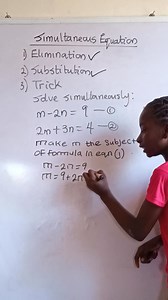 Simultaneous Equation
1) Elimination✓
2) Substitution✓
3) Trick
Solve simultaneously:
m-2n=9 —①
2m+3n=4 —②
make m the subject
of formula in eqn (1)
m-2n=9
m=9+2n